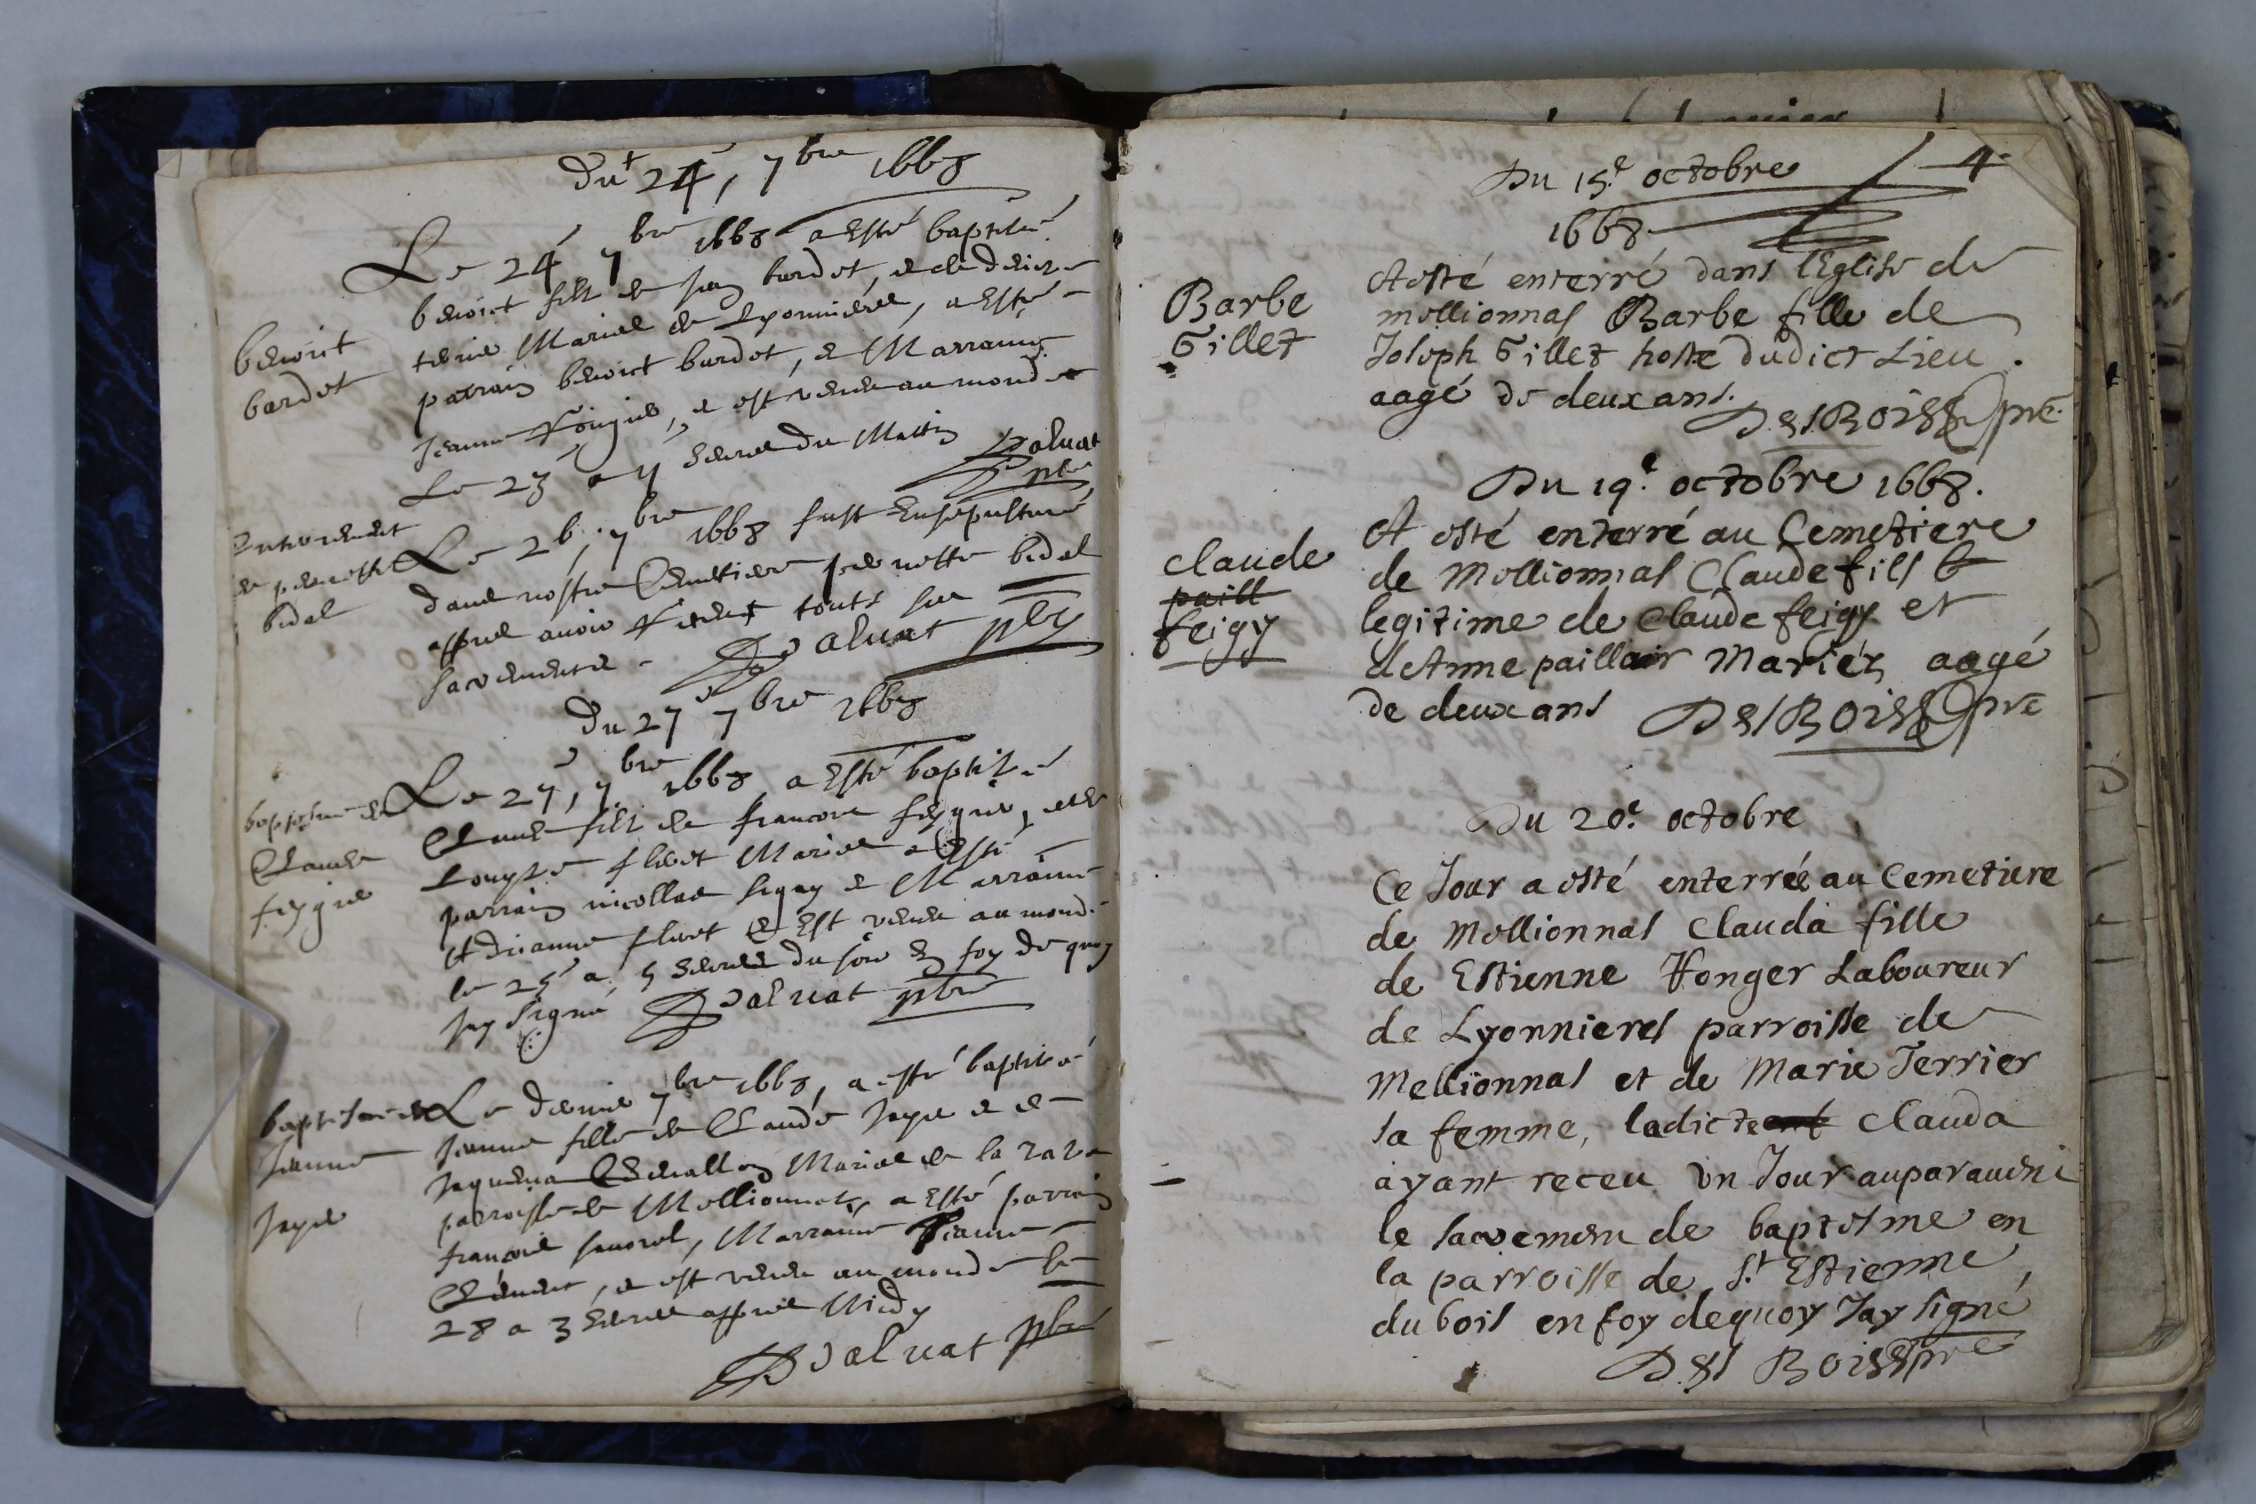 Du 24e, 7bre 1668
Le 24e 7bre 1668 a Esté baptisé
benoict fils de Jean bardet, et de denise
terrie Mariés de Lyonnieres, a Esté
parrain benoict bardet, et Marrayne
Jeanne Fongié, et est venu au monde
Le 23e a 4 heures du Mattin Dalvat
pbre
benoit
bardet
Enterrement
de pernette
bidal
Le 26, 7bre 1668 fust Ensepulturé
dans nostre Cemetiere pernette bidal
appres avoir Receu touts ses
sacrements. Dalvat pbre
Du 27e 7bre 1668
baptesme de
Claude
feygie
Le 27e, 7bre 1668, a Esté baptisé
Claude fils de francois feygie, et de
Louyse flivet Mariés a Esté
parrain nicollas et Marraine
Adrianne flivet et Est venu au monde
le 25e a 5 heures du soir En foy de quoy
Jay signé Dalvat pbre
baptesme de
Jeanne
Jaye
Le dernier 7bre 1668, a esté baptisé
Jeanne fille de Claude Jaye et de
Jaquema Chevallon Mariés de la
parroisse de Mellionnas, a Esté parrain
francois, Marraine Jeanne
Clement, et est venue au monde le
28 a 3 heures appres Midy
Dalvat pbre
4
Du 15e octobre
1668
Barbe
Gillet
A esté enterré dans l'Eglise de
mellionnas Barbe fille de
Joseph Gillet hoste dudict Lieu.
aagé de deux ans.
Des Bois pre
Du 19e octobre 1668.
claude
paill
feigy
A esté enterré au Cemetiere
de Mellionnas Claude fils
legitime de Claude feigy et
d'Anne paillair Mariéz aagé
de deux ans Des Bois pre
Du 20e octobre
Ce Jour a esté enterrée au Cemetiere
de Mellionnas Clauda fille
de Estienne Fonger Laboureur
de Lyonnieres parroisse de
Mellionnas et de Marie Terrier
sa femme, ladicte Clauda
ayant receu un Jour auparavent
le sacrement de baptesme en
la parroisse de St Estienne
du bois en foy dequoy Jay signé
Des Bois pre